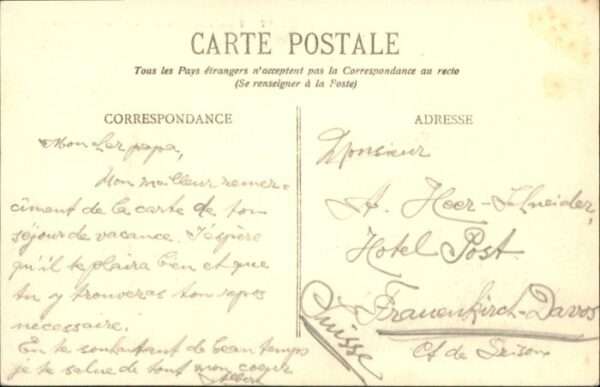 CARTE POSTALE
Tous les Pays étrangers n'acceptent pas la Correspondance au recto
(Se renseigner à la Poste)
CORRESPONDANCE
Mon cher papa,
Mon meilleur remer-
ciment de la carte de ton
séjour de vacance. J'éspère
qu'il te plaira bien et que
tu y trouveras ton repos
nécessaire.
En te souhaitant de beau temps
je te salue de tout mon coeur
Albert
ADRESSE
Monsieur
A. Heer-Schneider,
Hotel Post
Frauenkirch-Davos
Ct de Grisons
Suisse